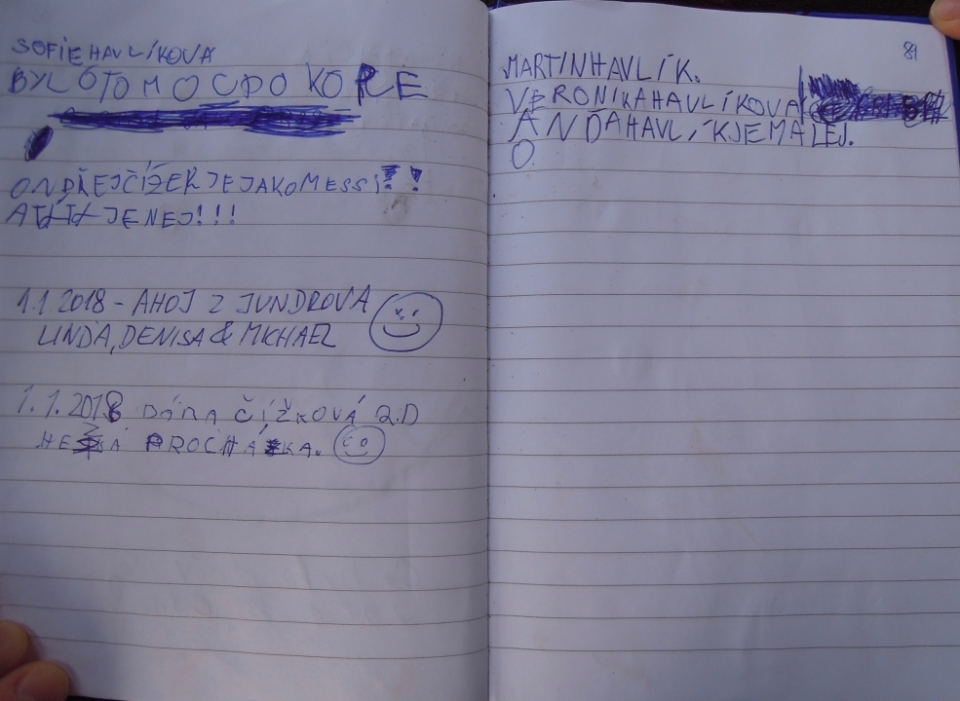 SOFIEHAVLÍKOVA
BYLOTOMOCDOKOPCE
ONDŘEJČÍŽEKJEJAKOMESSI!!
JENEJ!!!
1.1 2018 - AHOJ Z JUNDROVA
LINDA, DENISA & MICHAEL
1.1.2018 DÁNA ČÍŽKOVÁ 2.D
PROCHÁZKA.
89
MARTINHAVLÍK.
VERONIKAHAVLÍKOVA
ANĎAHAVLÍKJEMALEJ.
O.